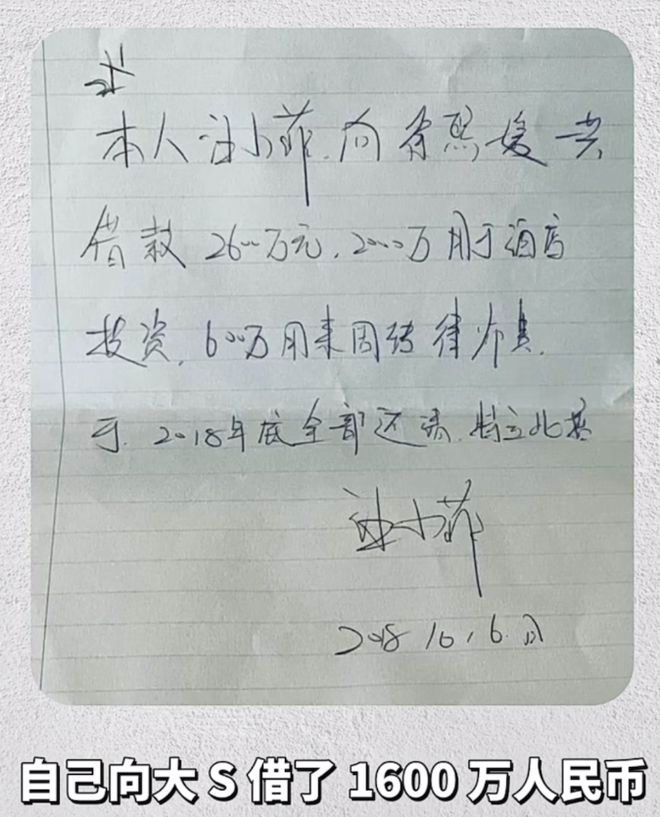 本人汪小菲.向徐熙媛共
借款2600万元.2000万用于酒店
投资.600万用来周转律师费.
于.2018年底全部还清.特立此据
汪小菲
2018 10.6.日
自己向大S借了1600万人民币